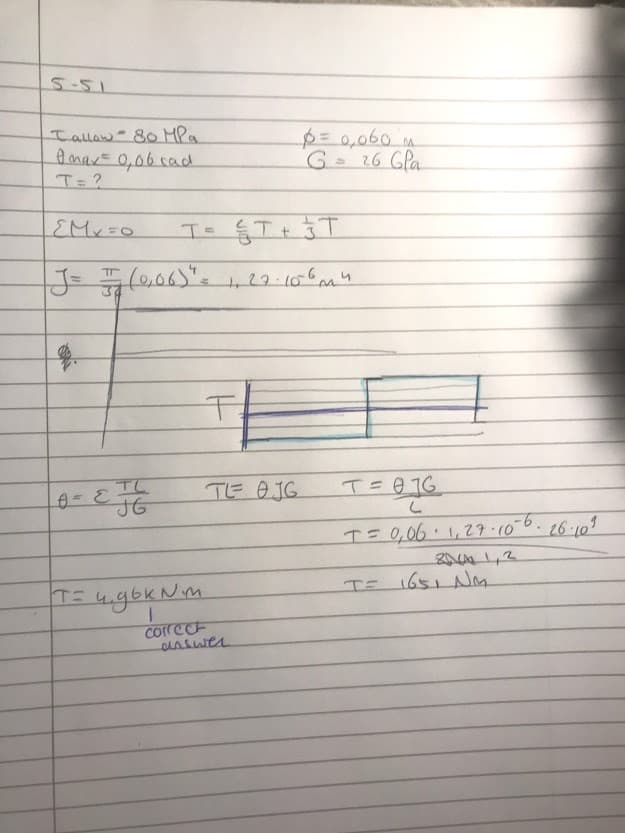 5-51
τallow = 80 MPa
θmax = 0,06 rad
T = ?
φ = 0,060 m
G = 26 GPa
ΣMx=0 T = 2/3 T + 1/3 T
J = π/32 (0,06)⁴ = 1,27·10⁻⁶ m⁴
T
θ = Σ TL/JG TL = θJG T = θJG/L
T = 0,06 · 1,27·10⁻⁶ · 26·10⁹
1,2
T = 1651 Nm
T = 4,96kNm
correct
answer